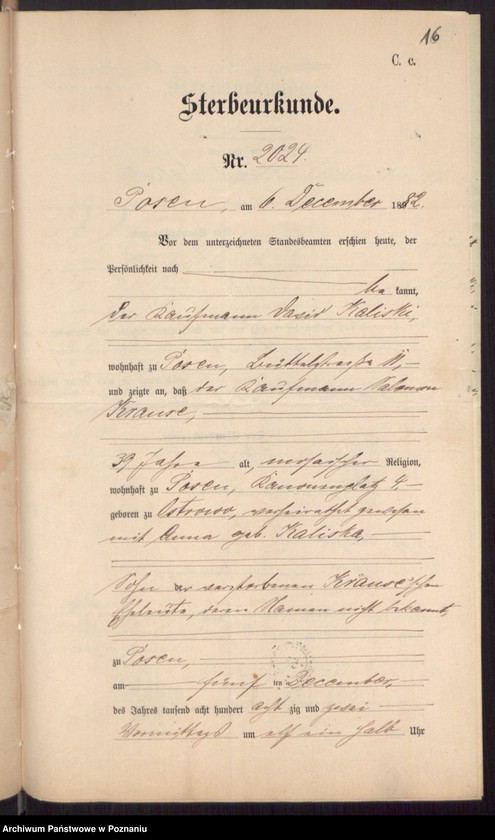 16
C. c.
Sterbeurkunde.
Nr. 2024.
Posen, am 6. December 1882.
Vor dem unterzeichneten Standesbeamten erschien heute, der
Persönlichkeit nach
be kannt,
der Kaufmann David Kaliski,
wohnhaft zu Posen, Büttelstraße
und zeigte an, daß der Kaufmann Salomon
Krause,
39 Jahre alt, mosaischer Religion,
wohnhaft zu Posen, Kanonenplatz 4,
geboren zu Ostrowo, verheirathet gewesen
mit Anna geb. Kaliska,
Sohn der verstorbenen Krause'schen
Eheleute, deren Namen nicht bekannt,
zu Posen,
am fünf ten December,
des Jahres tausend acht hundert acht zig und zwei
Vormittags um elf ein halb Uhr
Archiwum Państwowe w Poznaniu